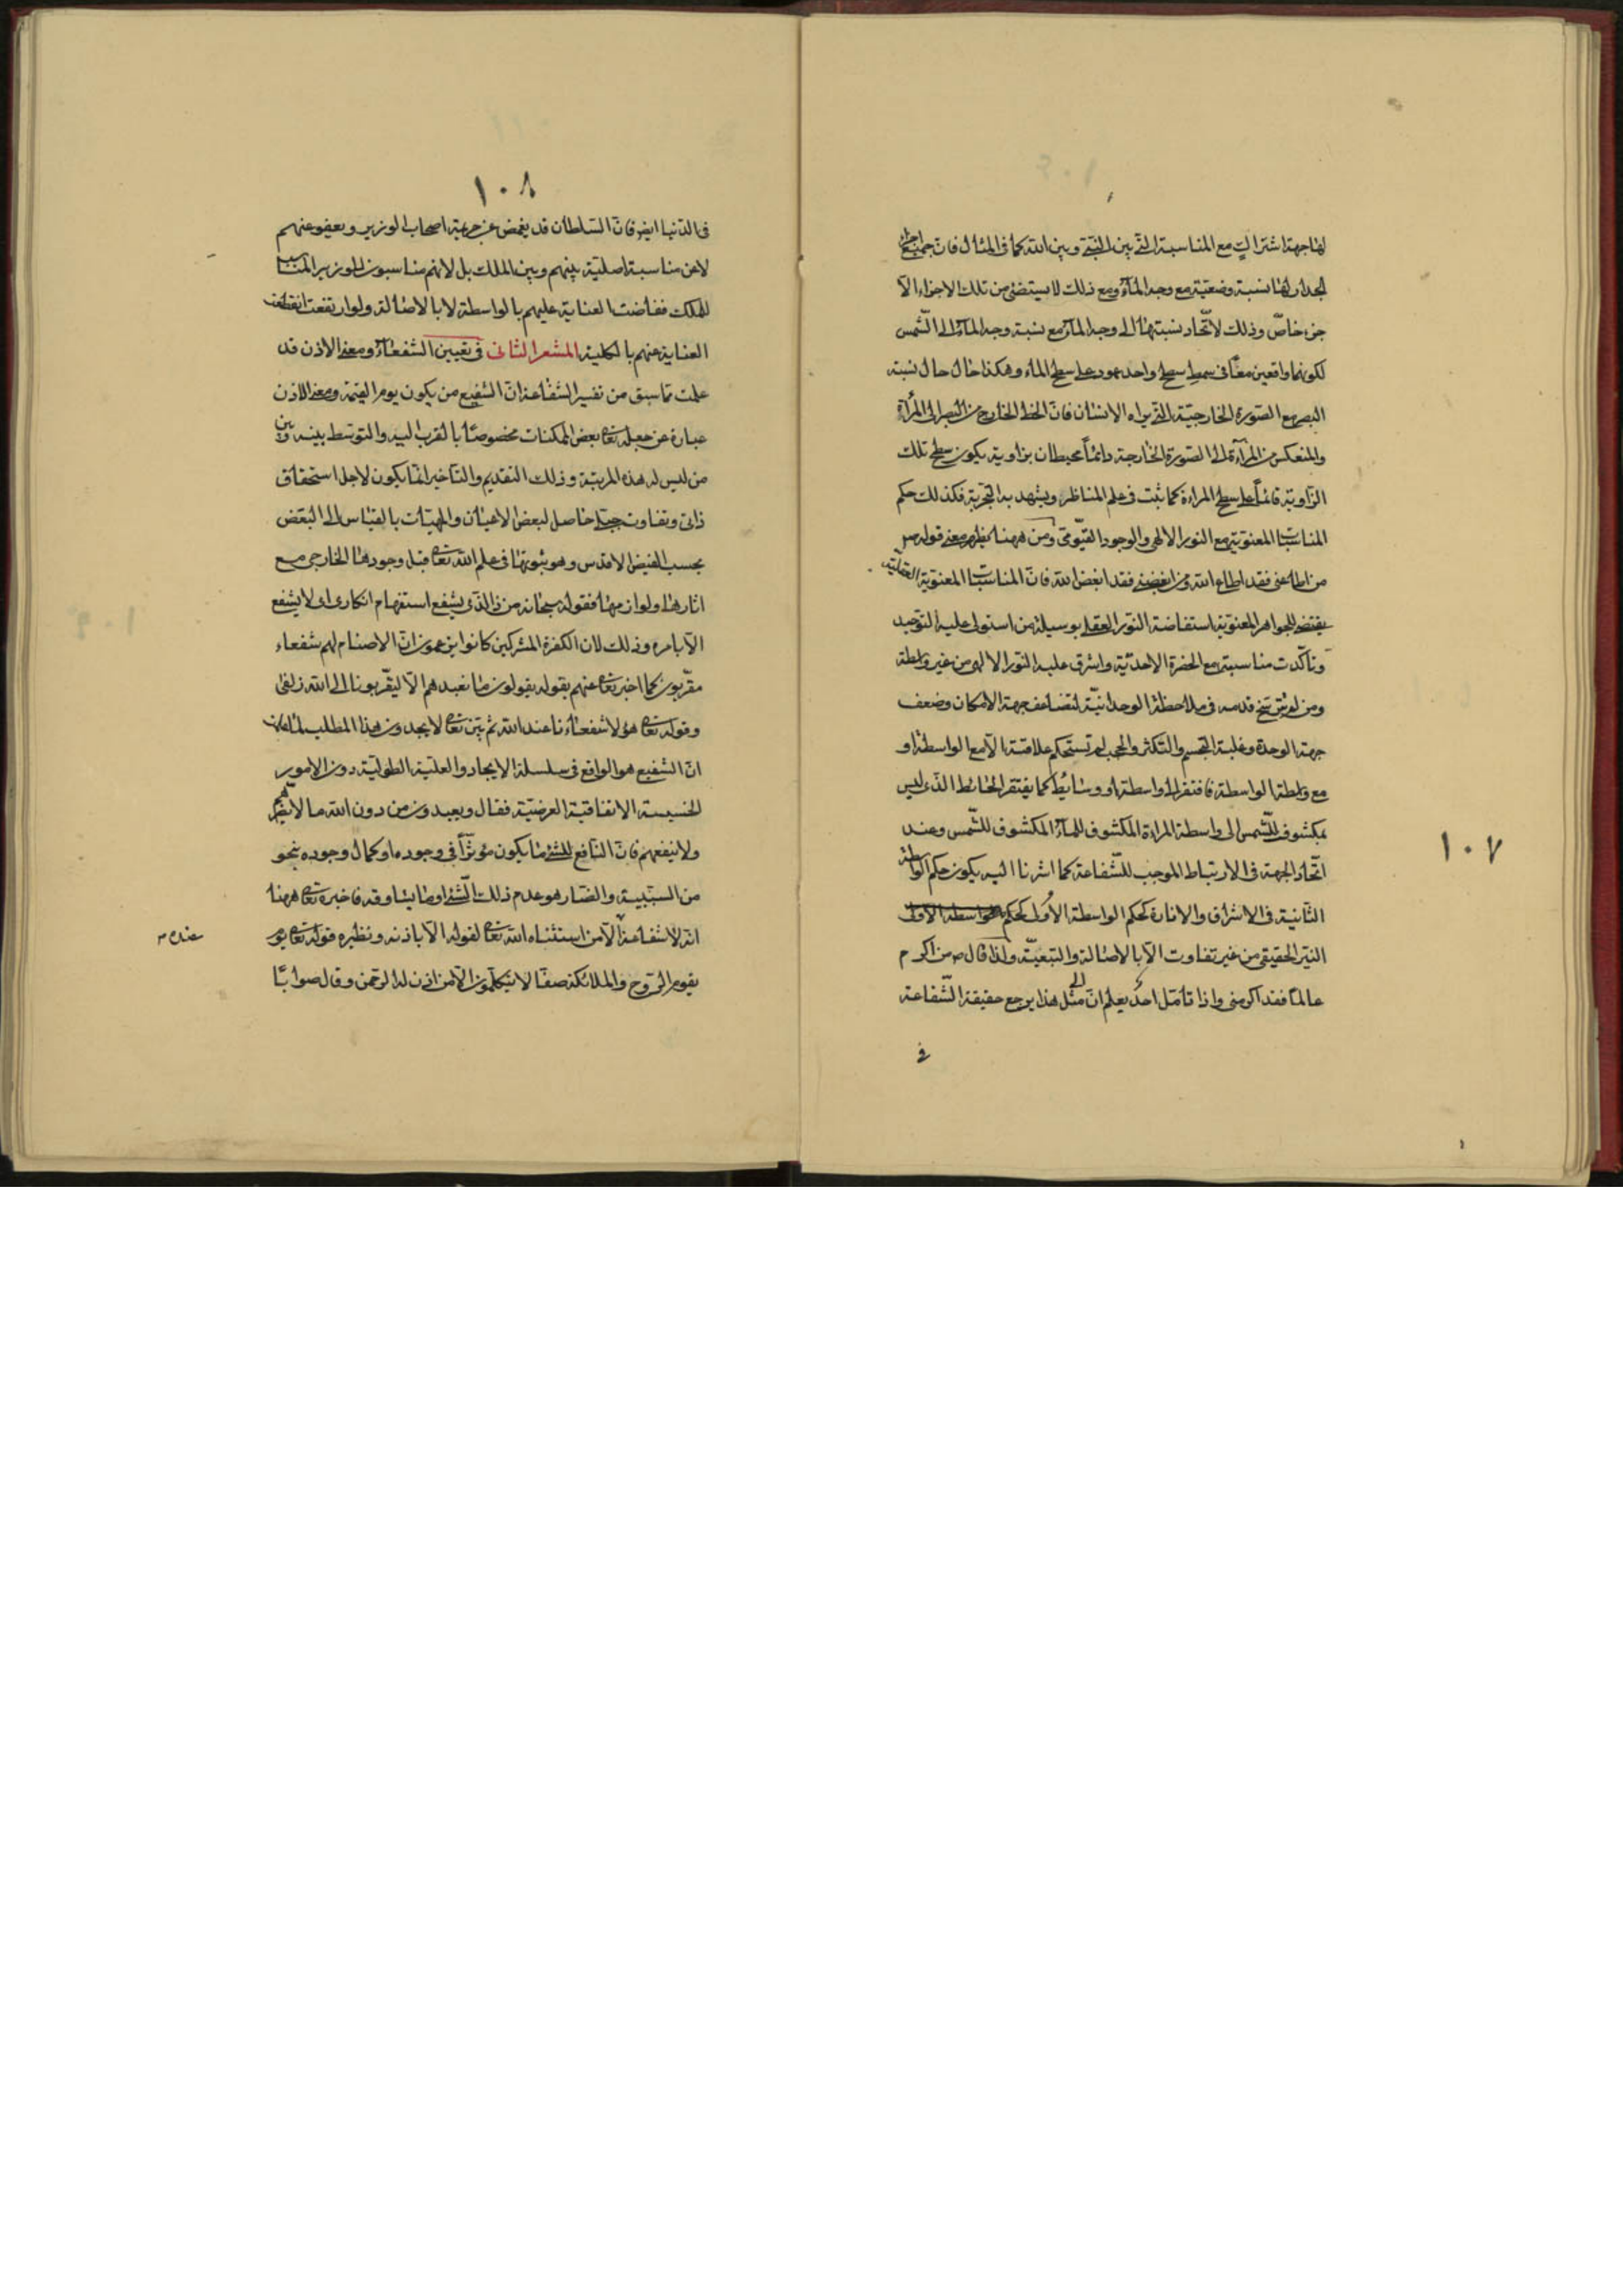 لها جهة اشتراك مع المناسبة التى بين النبى وبين الله كما فى المثال فان جميع اجزاء
الجدار لها نسبة وضعية مع وجه الماء ومع ذلك لا يستضئ من تلك الاجزاء الا
جزء خاص وذلك لاتحاد نسبتها الى وجه الماء مع نسبة وجه الماء الى الشمس
لكونهما واقعين معا فى سمط سطح واحد عمود على سطح الماء وهكذا حال حال نسبة
البصر مع الصورة الخارجية التى يراه الانسان فان الخط الخارج من البصر الى المرآة
والمنعكس من المرآة الى الصورة الخارجة دائما محيطان بزاوية يكون سطح تلك
الزاوية قائما على سطح المراة كما ثبت فى علم المناظر ويشهد به التجربة فكذلك حكم
المناسبات المعنوية مع النور الالهى والوجود القيومى ومن ههنا يظهر معنى قوله ص
من اطاعنى فقد اطاع الله ومن ابغضنى فقد ابغض الله فان المناسبات المعنوية العقلية
يقتضى للجواهر المعنوية استفاضة النور العقلى بوسيلة من استولى عليه التوحيد
وتأكدت مناسبته مع الحضرة الاحدية واشرق عليه النور الالهى من غير واسطة
ومن لم يترسخ قدمه فى ملاحظة الوحدانية لتضاعف جهة الامكان وضعف
جهة الوحدة وغلبة التجسم والتكثر والحجب لم تستحكم علاقته الا مع الواسطة او
مع واسطة الواسطة فافتقر الى واسطة او وسايط كما يفتقر الحائط الذى ليس
بمكشوف للشمس الى واسطة المراة المكشوف للماء المكشوف للشمس وعند
اتحاد الجهة فى الارتباط الموجب للشفاعة كما اشرنا اليه يكون حكم الواسطة
الثانية فى الاشراق والانارة كحكم الواسطة الاولى كحكم
النير الحقيقى من غير تفاوت الا بالاصالة والتبعية ولذا قال ص من اكرم
عالما فقد اكرمنى واذا تامل احد يعلم ان الى مثل هذا يرجع حقيقة الشفاعة
فى
١٠٧
١٠٨
فى الدنيا ايضا فان السلطان قد يغمض عن جريمة اصحاب الوزير ويعفو عنهم
لا عن مناسبة اصلية بينهم وبين الملك بل لانهم مناسبون للوزير المناسب
للملك ففاضت العناية عليهم بالواسطة لا بالاصالة ولو ارتفعت انقطعت
العناية عنهم بالكلية المشعر الثانى فى تعيين الشفعاء ومعنى الاذن قد
علمت مما سبق من تفسير الشفاعة ان الشفيع من يكون يوم القيمة ومعنى الاذن
عبارة عن جعله تعالى بعض الممكنات مخصوصا بالقرب اليه والتوسط بينه وبين
من ليس له هذه المرتبة وذلك التقديم والتأخير انما يكون لاجل استحقاق
ذاتى وتفاوت جبلى حاصل لبعض الاعيان والمهيات بالقياس الى البعض
بحسب الفيض الاقدس وهو ثبوتها فى علم الله تعالى قبل وجودها الخارجى مع
اثارها ولوازمها فقوله سبحانه من ذا الذى يشفع استفهام انكارى اى لا يشفع
الا بامره وذلك لان الكفرة المشركين كانوا يزعمون ان الاصنام لهم شفعاء
مقربون كما اخبر تعالى عنهم بقوله يقولون ما نعبدهم الا ليقربونا الى الله زلفى
وقوله تعالى هؤلاء شفعاءنا عند الله ثم بين تعالى لا يجدون هذا المطلب
ان الشفيع هو الواقع فى سلسلة الايجاد والعلية الطولية دون الامور
الخسيسة الاتفاقية العرضية فقال ويعبدون من دون الله ما لا يضرهم
ولا ينفعهم فان النافع للشئ ما يكون مؤثرا فى وجوده او كمال وجوده بنحو
من السببية والضار هو عدم ذلك الشئ او ما يساوقه فاخبر تعالى ههنا
انه لا شفاعة الا من استثناه الله تعالى لقوله الا باذنه ونظيره قوله تعالى يوم
يقوم الروح والملائكة صفا لا يتكلمون الا من اذن له الرحمن وقال صوابا
عنده